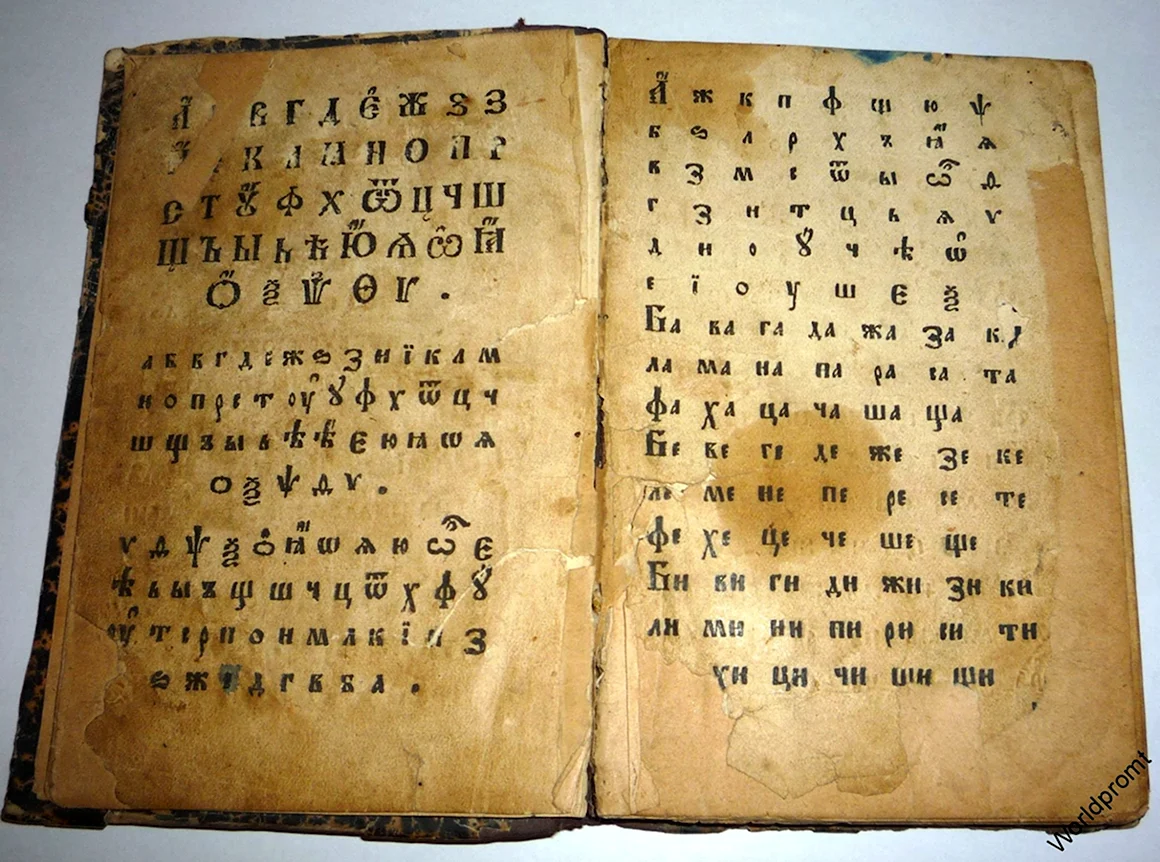 А В Г Д Є Ж Ѕ З
К Л М Н О П Р
С Т Ꙋ Ф Х Ѿ Ц Ч Ш
Щ Ъ Ы Ь Ѣ Ю Ѧ Ѽ Ꙗ
Ѻ Ѯ Ѱ Ѳ Ѵ .
а б в г д е ж ѕ з и ї к л м
н о п р с т оу ꙋ ф х ѿ ц ч
ш щ ъ ы ь ѣ ѣ є ю ꙗ ѡ ѧ
о ѯ ѱ д ѵ .
ѵ д ѱ ѯ о ꙗ ѡ ѧ ю ѽ є
ѣ ь ы ъ щ ш ч ц ѿ х ф ꙋ
оу т с р п о н м л к ї и з
ѕ ж д г в б а .
А ж к п ф щ ю ѱ
б ѕ л р х ъ ꙗ ѧ
в з м с ѿ ы ѽ д
г з н т ц ь ѧ ѵ
д и о ꙋ ч ѣ ѡ
е ї о у ш є ѯ
Ба ва га да жа за ка
ла ма на па ра са та
фа ха ца ча ша ща
Бе ве ге де же зе ке
ле ме не пе ре се те
фе хе це че ше ще
Би ви ги ди жи зи ки
ли ми ни пи ри си ти
хи ци чи ши щи
Worldpromt